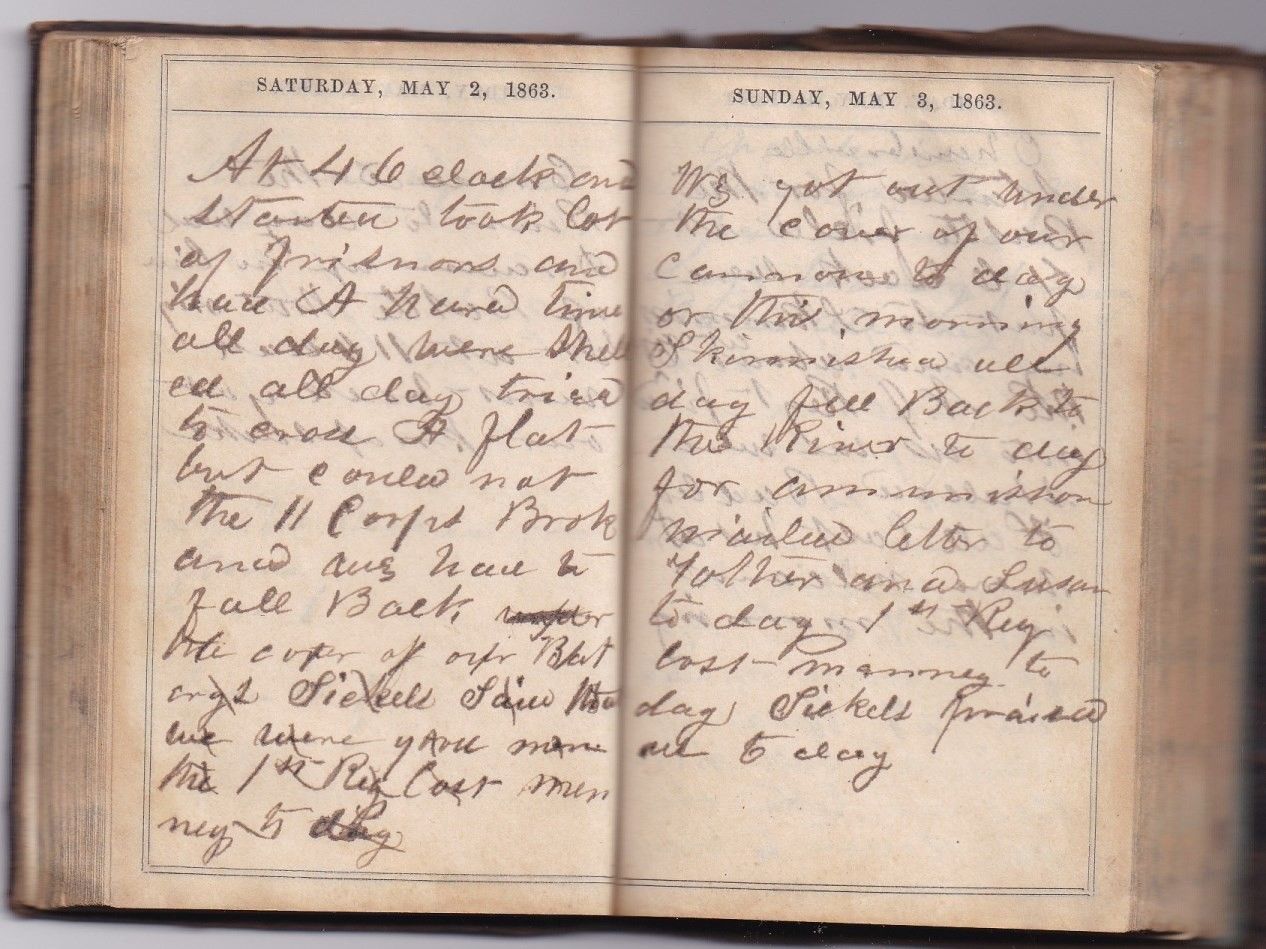 SATURDAY, MAY 2, 1863.
At 4 O clock and
started took lot
of prisnors and
had A hard time
all day were Shell
ed all day tried
to cross A flat
but could not
the 11 Corps Brok
and have to
fall Back under
the cover of our Bat
erys Sickels Said that
we were good men
the 1st Reg Lost men
ney to day
SUNDAY, MAY 3, 1863.
We got out under
the cover of our
cannon to day
or this morning
Skirmished all
day fell Back to
the River to day
for ammunishon
mailed letter to
Father and Susan
to day 1st Reg
lost manney to
day Sickels praised
us to day